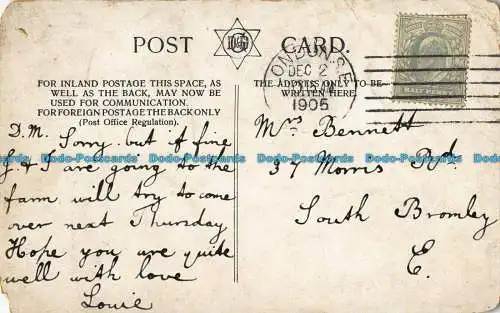 POST CARD.
FOR INLAND POSTAGE THIS SPACE, AS
WELL AS THE BACK, MAY NOW BE
USED FOR COMMUNICATION.
FOR FOREIGN POSTAGE THE BACK ONLY
(Post Office Regulation).
THE ADDRESS ONLY TO BE
WRITTEN HERE.
LONDON. S.E
DEC 2
1905
HALFPENNY
D.M. Sorry. but if fine
G & I are going to the
farm will try to come
over next Thursday
Hope you are quite
well with love
Louie
Mrs Bennett
37 Morris Rd.
South Bromley
E.
Dodo-Postcards
Dodo-Postcards
Dodo-Postcards
Dodo-Postcards
Dodo-Postcards
Dodo-Postcards